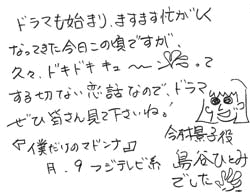 ドラマも始まり、ますます忙がしく
なってきた今日この頃ですが、
久々、ドキドキ キュ〜〜って
する切ない恋話なので、ドラマ
ぜひ皆さん見て下さいね!
『僕だけのマドンナ』
月.9 フジテレビ系
今村景子役
島谷ひとみ
でした